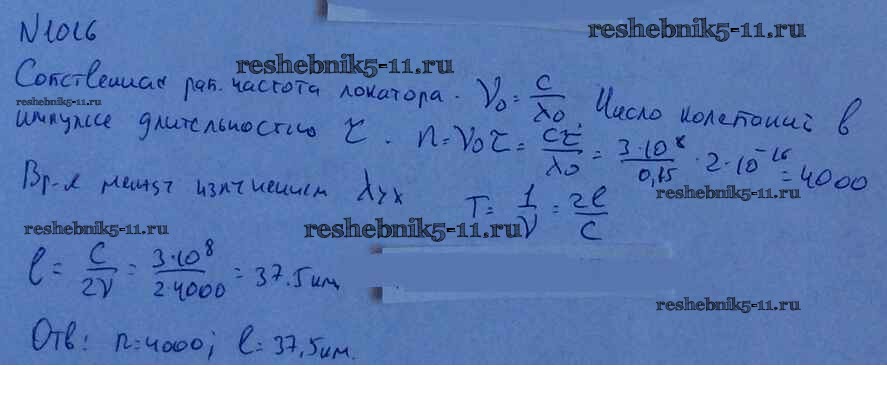 N1016
reshebnik5-11.ru
reshebnik5-11.ru
Собственная раб. частота локатора. ν₀ = c/λ₀. Число колебаний в
reshebnik5-11.ru
импульсе длительностью τ. n = ν₀τ = cτ/λ₀ = 3·10⁸/0,15 · 2·10⁻¹⁶ = 4000
reshebnik5-11.ru
Вр-я между T = 1/ν = 2l/c
reshebnik5-11.ru
reshebnik5-11.ru
l = c/2ν = 3·10⁸/2·4000 = 37.5км
reshebnik5-11.ru
Отв: n=4000; l=37,5км.